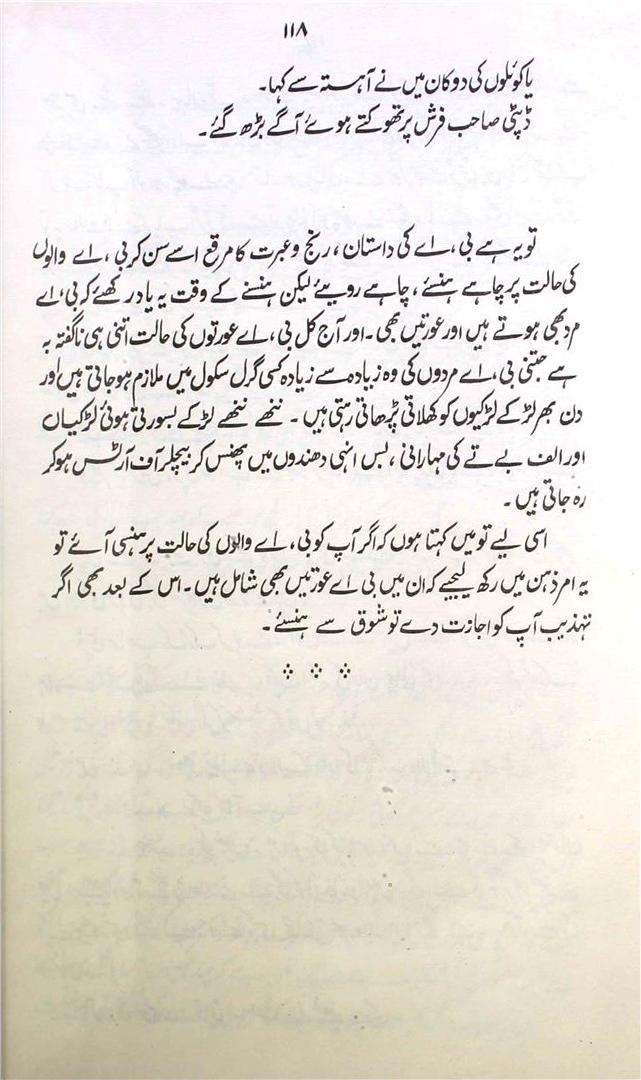 ۱۱۸
یا کوئلوں کی دوکان میں نے آہستہ سے کہا۔
ڈپٹی صاحب فرش پر تھوکتے ہوئے آگے بڑھ گئے۔
تو یہ ہے بی، اے کی داستان، رنج و عبرت کا مرقع اسے سن کر بی، اے والوں
کی حالت پر چاہے ہنسئے، چاہے رویئے لیکن ہنسنے کے وقت یہ یاد رکھئے کہ بی، اے
مرد بھی ہوتے ہیں اور عورتیں بھی۔ اور آج کل بی، اے عورتوں کی حالت اتنی ہی ناگفتہ بہ
ہے جتنی بی، اے مردوں کی وہ زیادہ سے زیادہ کسی گرل سکول میں ملازم ہوجاتی ہیں اور
دن بھر لڑکے لڑکیوں کو کھلاتی پڑھاتی رہتی ہیں۔ ننھے ننھے لڑکے بسورتی ہوئی لڑکیاں
اور الف بے تے کی مہارانی، بس انہی دھندوں میں پھنس کر بیچلر آف آرٹس ہو کر
رہ جاتی ہیں۔
اسی لیے تو میں کہتا ہوں کہ اگر آپ کو بی، اے والوں کی حالت پر ہنسی آئے تو
یہ امر ذہن میں رکھ لیجیے کہ ان میں بی اے عورتیں بھی شامل ہیں۔ اس کے بعد بھی اگر
تہذیب آپ کو اجازت دے تو شوق سے ہنسئے۔